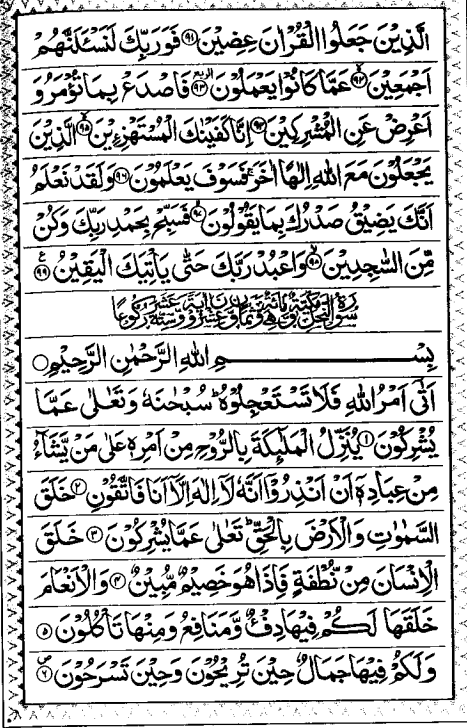 الَّذِيْنَ جَعَلُوا الْقُرْاٰنَ عِضِيْنَ ﴿۹۱﴾ فَوَرَبِّكَ لَنَسْـَٔلَنَّهُمْ
اَجْمَعِيْنَ ﴿۹۲﴾ عَمَّا كَانُوْا يَعْمَلُوْنَ ﴿۹۳﴾ فَاصْدَعْ بِمَا تُؤْمَرُ وَ
اَعْرِضْ عَنِ الْمُشْرِكِيْنَ ﴿۹۴﴾ اِنَّا كَفَيْنٰكَ الْمُسْتَهْزِءِيْنَ ﴿۹۵﴾ الَّذِيْنَ
يَجْعَلُوْنَ مَعَ اللّٰهِ اِلٰهًا اٰخَرَ ۚ فَسَوْفَ يَعْلَمُوْنَ ﴿۹۶﴾ وَلَقَدْ نَعْلَمُ
اَنَّكَ يَضِيْقُ صَدْرُكَ بِمَا يَقُوْلُوْنَ ﴿۹۷﴾ فَسَبِّحْ بِحَمْدِ رَبِّكَ وَكُنْ
مِّنَ السّٰجِدِيْنَ ﴿۹۸﴾ وَاعْبُدْ رَبَّكَ حَتّٰى يَاْتِيَكَ الْيَقِيْنُ ﴿۹۹﴾ ع
سُوْرَةُ النَّحْلِ مَكِّيَّةٌ وَّهِيَ مِائَةٌ وَّثَمَانٍ وَّعِشْرُوْنَ اٰيَةً وَّسِتَّةَ عَشَرَ رُكُوْعًا
بِسْمِ اللّٰهِ الرَّحْمٰنِ الرَّحِيْمِ
اَتٰٓى اَمْرُ اللّٰهِ فَلَا تَسْتَعْجِلُوْهُ ؕ سُبْحٰنَهٗ وَتَعٰلٰى عَمَّا
يُشْرِكُوْنَ ﴿۱﴾ يُنَزِّلُ الْمَلٰٓئِكَةَ بِالرُّوْحِ مِنْ اَمْرِهٖ عَلٰى مَنْ يَّشَآءُ
مِنْ عِبَادِهٖۤ اَنْ اَنْذِرُوْۤا اَنَّهٗ لَاۤ اِلٰهَ اِلَّاۤ اَنَا فَاتَّقُوْنِ ﴿۲﴾ خَلَقَ
السَّمٰوٰتِ وَالْاَرْضَ بِالْحَقِّ ؕ تَعٰلٰى عَمَّا يُشْرِكُوْنَ ﴿۳﴾ خَلَقَ
الْاِنْسَانَ مِنْ نُّطْفَةٍ فَاِذَا هُوَ خَصِيْمٌ مُّبِيْنٌ ﴿۴﴾ وَالْاَنْعَامَ
خَلَقَهَا ۚ لَكُمْ فِيْهَا دِفْءٌ وَّمَنَافِعُ وَمِنْهَا تَاْكُلُوْنَ ﴿۵﴾
وَلَكُمْ فِيْهَا جَمَالٌ حِيْنَ تُرِيْحُوْنَ وَحِيْنَ تَسْرَحُوْنَ ﴿۶﴾ ص